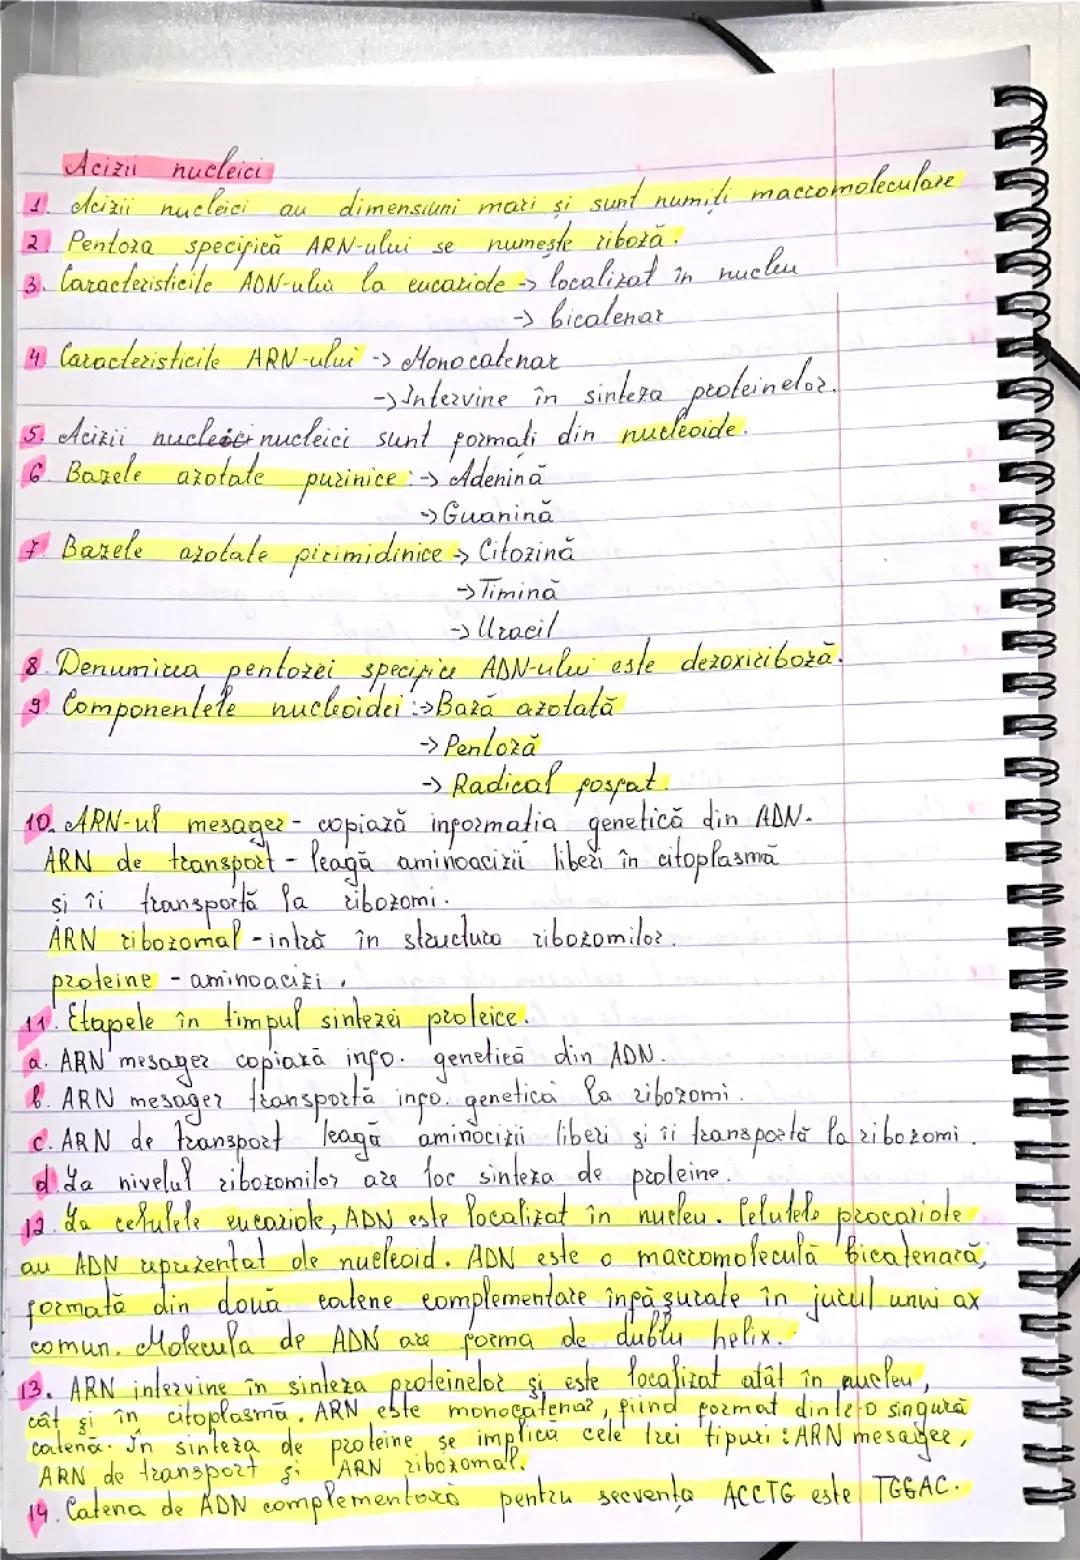 Acizii nucleici
1. Acizii nucleici au dimensiuni mari și sunt numiți macromoleculare
2. Pentoza specifică ARN-ului se numește riboză.
3. Caracteristicile ADN-ului la eucariote -> localizat în nucleu
-> bicatenar
4. Caracteristicile ARN-ului -> Monocatenar
-> Intervine în sinteza proteinelor.
5. Acizii nucleici sunt formați din nucleoide.
6. Bazele azotate purinice: -> Adenină
-> Guanină
7. Bazele azotate pirimidinice -> Citozină
-> Timină
-> Uracil
8. Denumirea pentozei specifice ADN-ului este dezoxiriboză.
9. Componentele nucleoidei: -> Bază azotată
-> Pentoză
-> Radical fosfat.
10. ARN-ul mesager - copiază informația genetică din ADN.
ARN de transport - leagă aminoacizii liberi în citoplasmă
și îi transportă la ribozomi.
ARN ribozomal - intră în structura ribozomilor.
proteine - aminoacizi.
11. Etapele în timpul sintezei proteice.
a. ARN mesager copiază info. genetică din ADN.
b. ARN mesager transportă info. genetică la ribozomi.
c. ARN de transport leagă aminocizii liberi și îi transportă la ribozomi.
d. La nivelul ribozomilor are loc sinteza de proteine.
12. La celulele eucariote, ADN este localizat în nucleu. Celulele procariote
au ADN reprezentat de nucleoid. ADN este o macromoleculă bicatenară,
formată din două catene complementare înfășurate în jurul unui ax
comun. Molecula de ADN are forma de dublu helix.
13. ARN intervine în sinteza proteinelor și este localizat atât în nucleu,
cât și în citoplasmă. ARN este monocatenar, fiind format dintr-o singură
catenă. În sinteza de proteine se implică cele trei tipuri: ARN mesager,
ARN de transport și ARN ribozomal.
14. Catena de ADN complementară pentru secvența ACCTG este TGGAC.